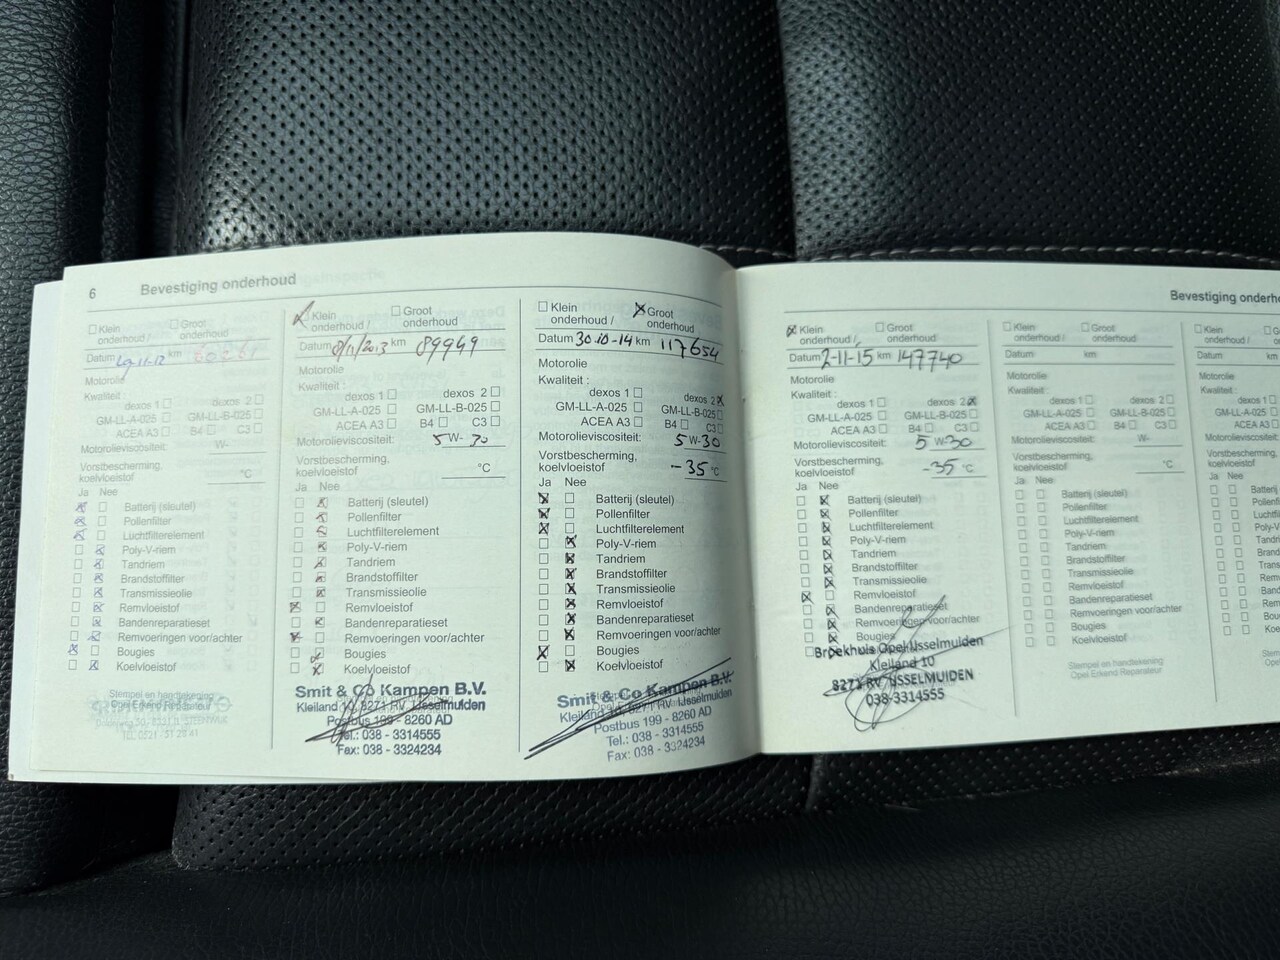 6 Bevestiging onderhoud
Klein onderhoud / Groot onderhoud
Datum 19-11-12 km 60261
Motorolie
Kwaliteit :
dexos 1 dexos 2
GM-LL-A-025 GM-LL-B-025
ACEA A3 B4 C3
Motorolieviscositeit: W-
Vorstbescherming,
koelvloeistof °C
Ja Nee
Batterij (sleutel)
Pollenfilter
Luchtfilterelement
Poly-V-riem
Tandriem
Brandstoffilter
Transmissieolie
Remvloeistof
Bandenreparatieset
Remvoeringen voor/achter
Bougies
Koelvloeistof
Stempel en handtekening
Opel Erkend Reparateur
Klein onderhoud / Groot onderhoud
Datum 8/11/2013 km 89949
Motorolie
Kwaliteit :
dexos 1 dexos 2
GM-LL-A-025 GM-LL-B-025
ACEA A3 B4 C3
Motorolieviscositeit: 5 W- 30
Vorstbescherming,
koelvloeistof °C
Ja Nee
Batterij (sleutel)
Pollenfilter
Luchtfilterelement
Poly-V-riem
Tandriem
Brandstoffilter
Transmissieolie
Remvloeistof
Bandenreparatieset
Remvoeringen voor/achter
Bougies
Koelvloeistof
Smit & Co Kampen B.V.
Kleiland 10, 8271 RV IJsselmuiden
Postbus 199 - 8260 AD
Tel.: 038 - 3314555
Fax: 038 - 3324234
Klein onderhoud / Groot onderhoud
Datum 30-10-14 km 117654
Motorolie
Kwaliteit :
dexos 1 dexos 2
GM-LL-A-025 GM-LL-B-025
ACEA A3 B4 C3
Motorolieviscositeit: 5 W-30
Vorstbescherming,
koelvloeistof -35 °C
Ja Nee
Batterij (sleutel)
Pollenfilter
Luchtfilterelement
Poly-V-riem
Tandriem
Brandstoffilter
Transmissieolie
Remvloeistof
Bandenreparatieset
Remvoeringen voor/achter
Bougies
Koelvloeistof
Smit & Co Kampen B.V.
Kleiland 10, 8271 RV IJsselmuiden
Postbus 199 - 8260 AD
Tel.: 038 - 3314555
Fax: 038 - 3324234
Bevestiging onderho
Klein onderhoud / Groot onderhoud
Datum 2-11-15 km 147740
Motorolie
Kwaliteit :
dexos 1 dexos 2
GM-LL-A-025 GM-LL-B-025
ACEA A3 B4 C3
Motorolieviscositeit: 5 W-30
Vorstbescherming,
koelvloeistof -35 °C
Ja Nee
Batterij (sleutel)
Pollenfilter
Luchtfilterelement
Poly-V-riem
Tandriem
Brandstoffilter
Transmissieolie
Remvloeistof
Bandenreparatieset
Remvoeringen voor/achter
Bougies
Broekhuis Opel IJsselmuiden
Kleiland 10
8271 RV IJSSELMUIDEN
038-3314555
Klein onderhoud / Groot onderhoud
Datum km
Motorolie
Kwaliteit :
dexos 1 dexos 2
GM-LL-A-025 GM-LL-B-025
ACEA A3 B4 C3
Motorolieviscositeit: W-
Vorstbescherming,
koelvloeistof °C
Ja Nee
Batterij (sleutel)
Pollenfilter
Luchtfilterelement
Poly-V-riem
Tandriem
Brandstoffilter
Transmissieolie
Remvloeistof
Bandenreparatieset
Remvoeringen voor/achter
Bougies
Koelvloeistof
Stempel en handtekening
Opel Erkend Reparateur
Klein
onderhoud /
Datum
Motorolie
Kwaliteit :
dexos 1
GM-LL-A-025
ACEA A3
Motorolieviscositeit:
Vorstbescherming,
koelvloeistof
Ja Nee